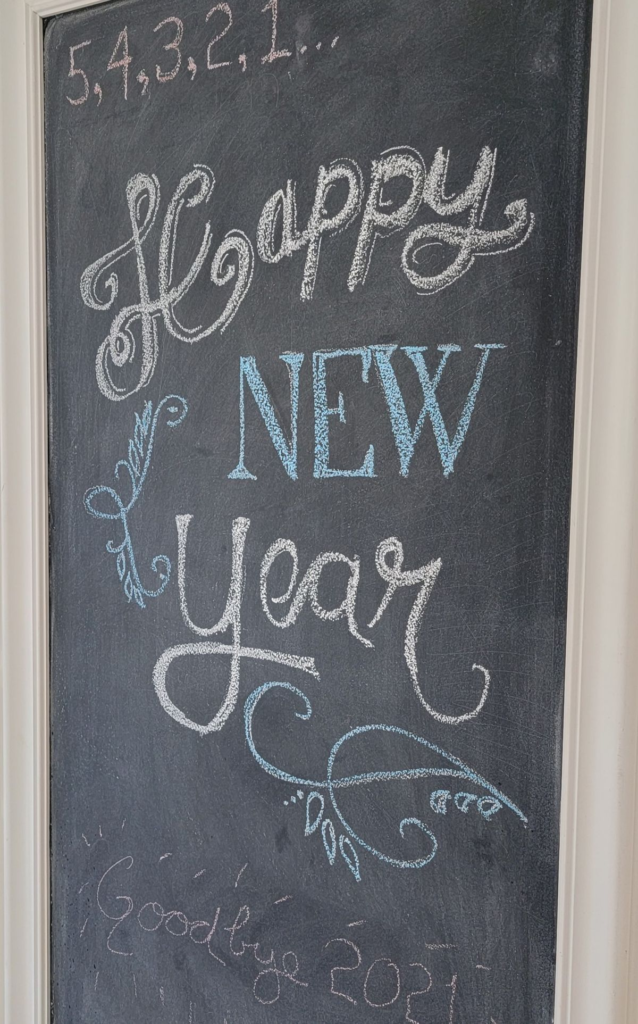 5,4,3,2,1...
Happy
NEW
Year
Goodbye 2021